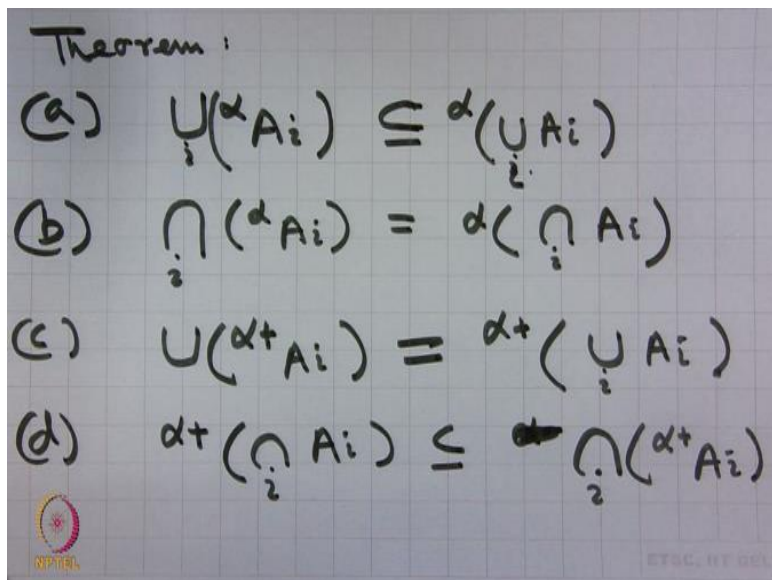 Theorem:
(a) ⋃ᵢ(ᵅAᵢ) ⊆ ᵅ(⋃ᵢ Aᵢ)
(b) ⋂ᵢ (ᵅAᵢ) = ᵅ(⋂ᵢ Aᵢ)
(c) ⋃(ᵅ⁺Aᵢ) = ᵅ⁺(⋃ᵢ Aᵢ)
(d) ᵅ⁺(⋂ᵢ Aᵢ) ⊆ ⋂ᵢ(ᵅ⁺Aᵢ)
NPTEL
ETSC, IIT DEL